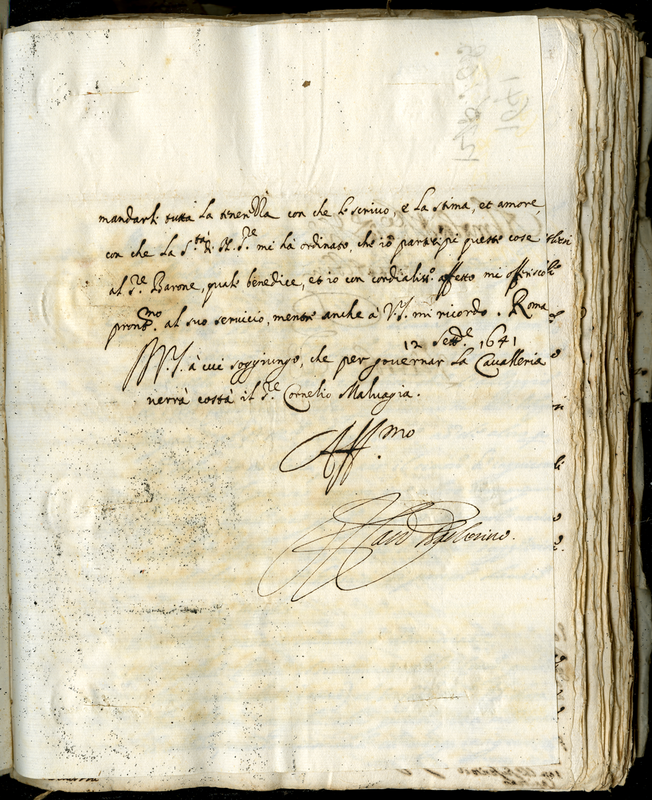 mandarli tutta la tenerezza con che lo scrivo, e la stima, et amore,
con che la S.tà di N. S.re mi ha ordinato, che io partecipi queste cose
al S.re Barone, quale benedice, et io con cordialiss.o affetto mi offerisco
pront.mo al suo servicio, mentre anche à V.S. mi ricordo. Roma
12 Sett.e 1641
V.S. à cui soggiungo, che per governar la Cavalleria
verrà costà il S.re Cornelio Malvagia.
Aff.mo
Card Barberino.